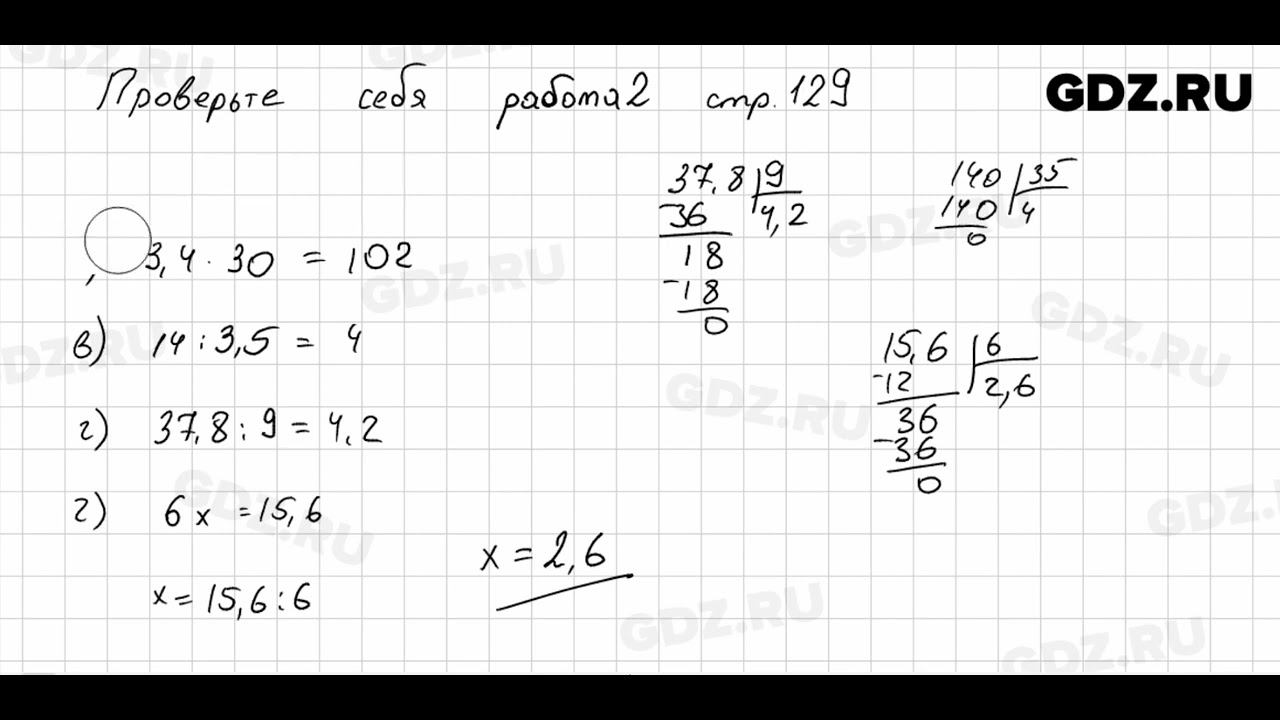 Проверьте себя работа 2 стр. 129
GDZ.RU
3,4 · 30 = 102
в) 14 : 3,5 = 4
г) 37,8 : 9 = 4,2
г) 6x = 15,6
x = 15,6 : 6
x = 2,6
37,8 | 9
-36 4,2
18
-18
0
140 | 35
140 4
0
15,6 | 6
-12 2,6
36
-36
0
GDZ.RU
GDZ.RU
GDZ.RU
GDZ.RU
GDZ.RU
GDZ.RU
GDZ.RU
GDZ.RU
GDZ.RU
GDZ.RU
GDZ.RU